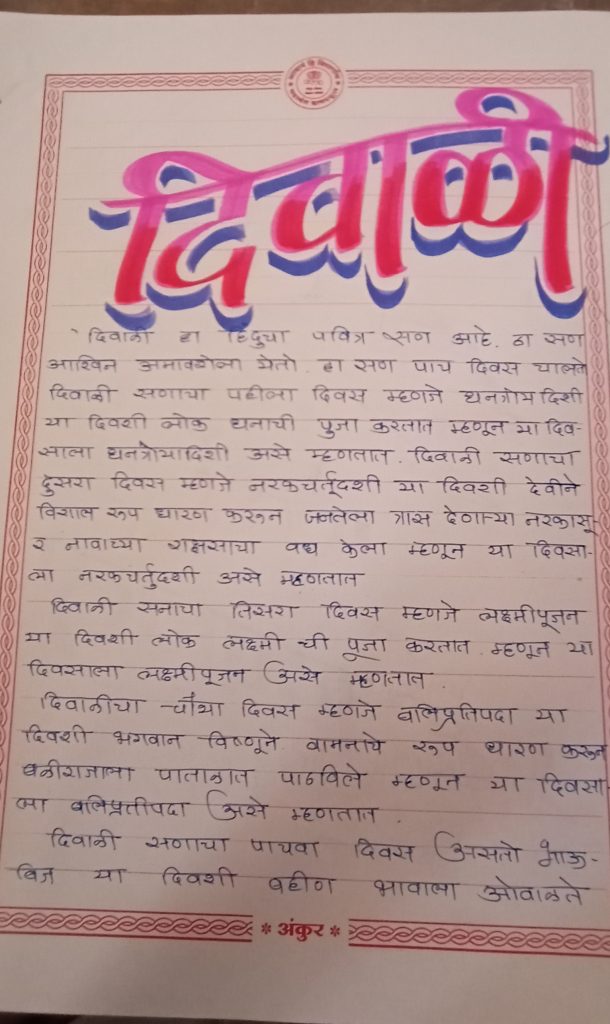 दिवाळी
दिवाळी हा हिंदुचा पवित्र सण आहे. हा सण
आश्विन अमावस्येला येतो. हा सण पाच दिवस चालते
दिवाळी सणाचा पहीला दिवस म्हणजे धनत्रोयादिशी
या दिवशी लोक धनाची पुजा करतात म्हणून या दिव-
साला धनत्रोयादिशी असे म्हणतात. दिवाळी सणाचा
दुसरा दिवस म्हणजे नरकचर्तूदशी या दिवशी देवीने
विशाल रूप धारण करून जनतेला त्रास देणाऱ्या नरकासू-
र नावाच्या राक्षसाचा वध केला म्हणून या दिवसा-
ला नरकचर्तुदशी असे म्हणतात
दिवाळी सनाचा तिसरा दिवस म्हणजे लक्ष्मीपूजन
या दिवशी लोक लक्ष्मी ची पूजा करतात. म्हणून या
दिवसाला लक्ष्मीपूजन असे म्हणतात.
दिवाळीचा चौथा दिवस म्हणजे बलिप्रतिपदा या
दिवशी भगवान विष्णूने वामनाचे रूप धारण करून
बळीराजाला पाताळात पाठविले म्हणून या दिवसा-
ला बलिप्रतीपदा असे म्हणतात.
दिवाळी सणाचा पाचवा दिवस असतो भाऊ-
बिज या दिवशी बहीण भावाला ओवाळते
* अंकुर *